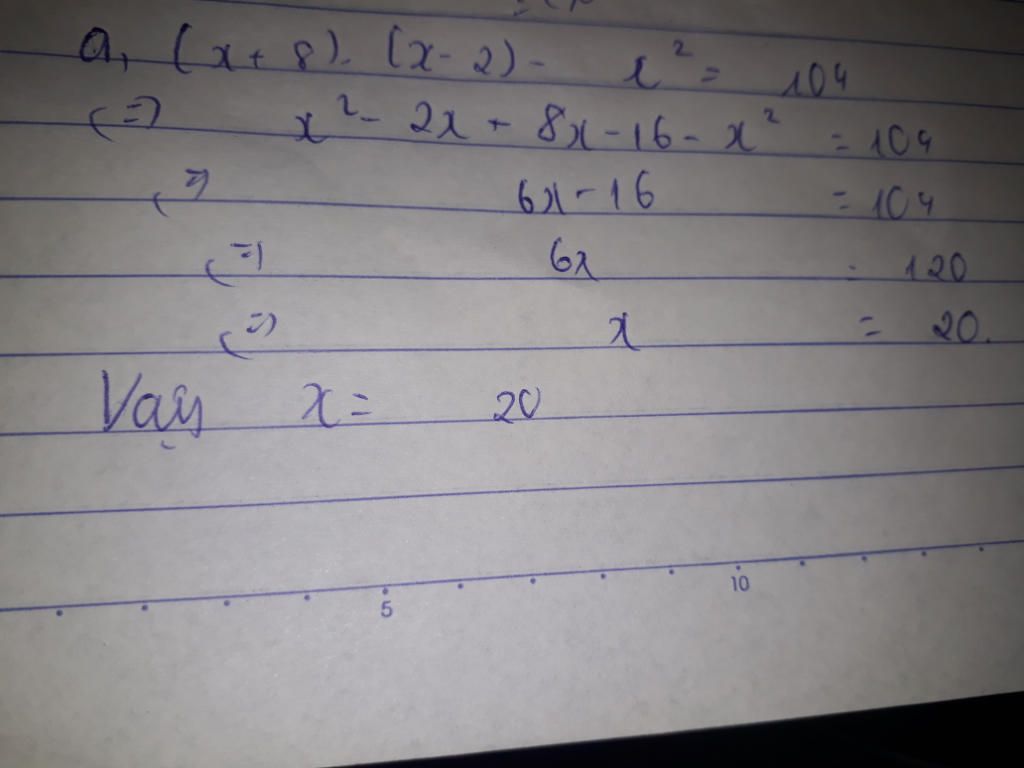 a, (x+8).(x-2)- x² = 104
(=) x²- 2x + 8x-16- x² = 104
(=) 6x-16 = 104
(=) 6x = 120
(=) x = 20.
Vậy x = 20
5 10